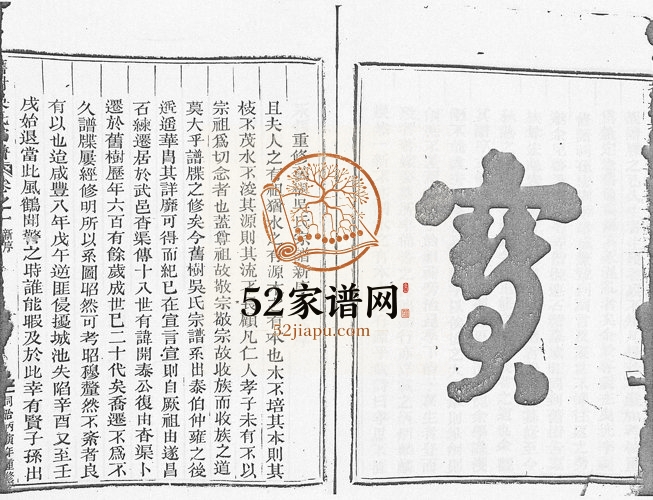 寳
重修舊樹吳氏宗譜新序
且夫人之有祖猶水之有源木之有本也木不培其本則其
枝不茂水不浚其源則其流不長顧凡仁人孝子未有不以
宗祖爲切念者也蓋尊祖故敬宗敬宗故收族而收族之道
莫大乎譜牒之修矣今舊樹吳氏宗譜系出泰伯仲雍之後
遙遙華冑其詳靡可得而紀已在宣言宣則自厥祖由遂昌
石練遷居於武邑杳渠傳十八世有諱開泰公復由杳渠卜
遷於舊樹歷年六百有餘歲成世巳二十代矣喬遷不爲不
久譜牒屢經修明所以系圖昭然可考昭穆釐然不紊者良
有以也迨咸豐八年戊午逆匪侵擾城池失陷辛酉又至壬
戌始退當此風鶴聞警之時誰能暇及於此幸有賢子孫出
52家谱网
52jiapu.com
卷之一
新序
同治丙寅年重修